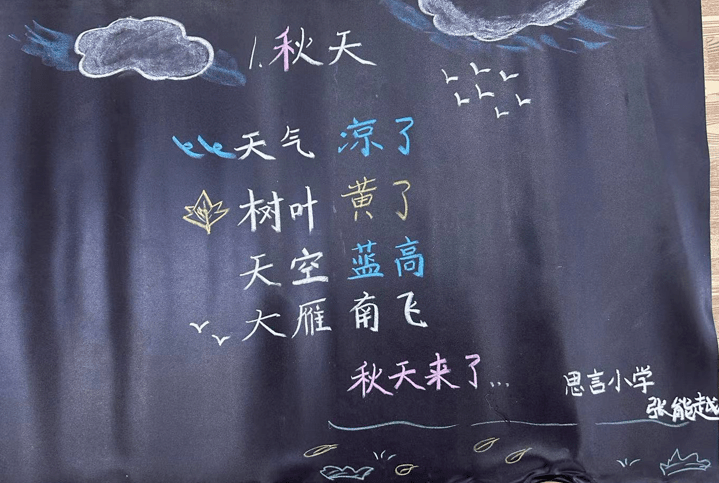 1.秋天
天气 凉了
树叶 黄了
天空 蓝高
大雁 南飞
秋天来了...
思言小学
张能越